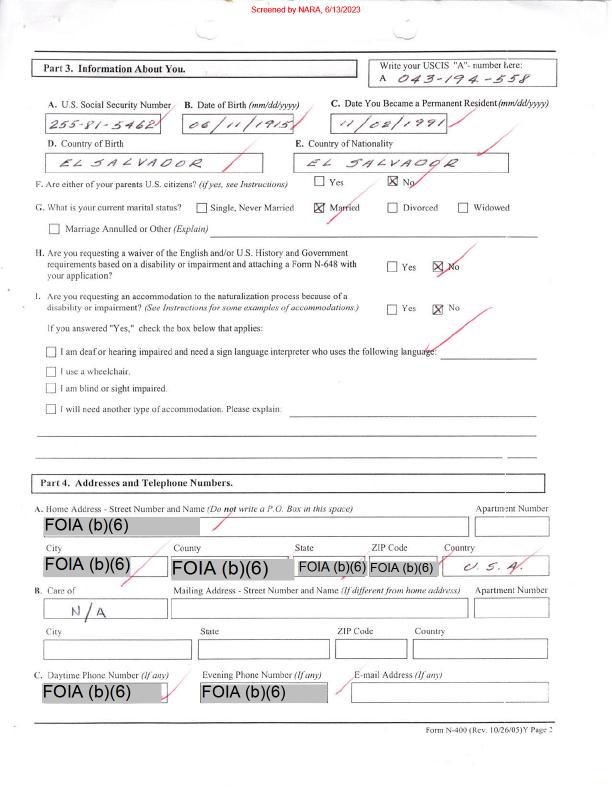 Screened by NARA, 6/13/2023
Part 3. Information About You.
Write your USCIS "A"- number here:
A 043-194-558
A. U.S. Social Security Number B. Date of Birth (mm/dd/yyyy) C. Date You Became a Permanent Resident (mm/dd/yyyy)
255-81-5462 06/11/1915 11/02/1991
D. Country of Birth E. Country of Nationality
EL SALVADOR EL SALVADOR
F. Are either of your parents U.S. citizens? (if yes, see Instructions) Yes No
G. What is your current marital status? Single, Never Married Married Divorced Widowed
Marriage Annulled or Other (Explain)
H. Are you requesting a waiver of the English and/or U.S. History and Government
requirements based on a disability or impairment and attaching a Form N-648 with
your application? Yes No
I. Are you requesting an accommodation to the naturalization process because of a
disability or impairment? (See Instructions for some examples of accommodations.) Yes No
If you answered "Yes," check the box below that applies:
I am deaf or hearing impaired and need a sign language interpreter who uses the following language:
I use a wheelchair.
I am blind or sight impaired.
I will need another type of accommodation. Please explain:
Part 4. Addresses and Telephone Numbers.
A. Home Address - Street Number and Name (Do not write a P.O. Box in this space) Apartment Number
FOIA (b)(6)
City County State ZIP Code Country
FOIA (b)(6) FOIA (b)(6) FOIA (b)(6) FOIA (b)(6) U.S.A.
B. Care of Mailing Address - Street Number and Name (If different from home address) Apartment Number
N/A
City State ZIP Code Country
C. Daytime Phone Number (If any) Evening Phone Number (If any) E-mail Address (If any)
FOIA (b)(6) FOIA (b)(6)
Form N-400 (Rev. 10/26/05)Y Page 2